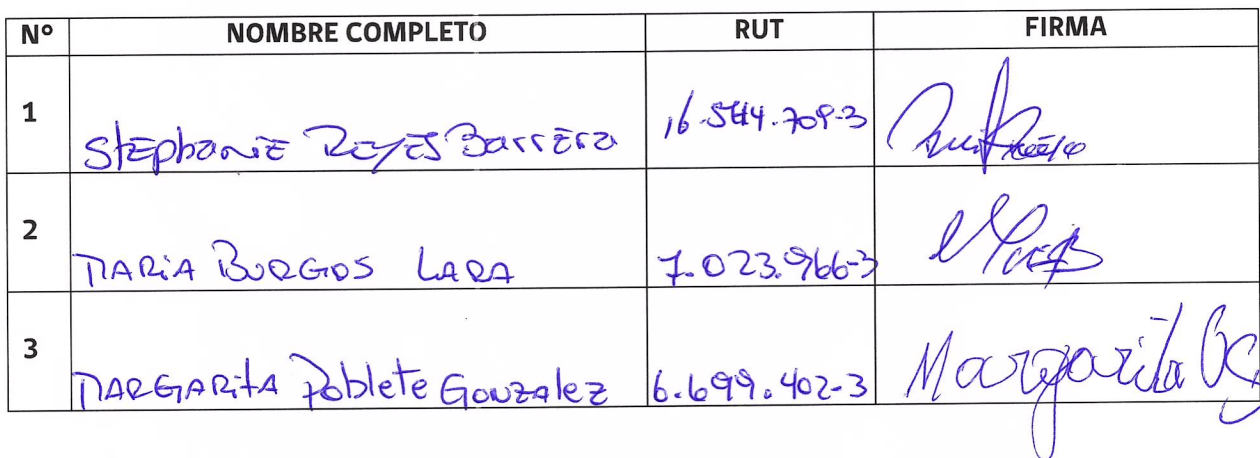 Nº NOMBRE COMPLETO RUT FIRMA
1 Stephanie Reyes Barrera 16.544.709-3
2 MARIA BURGOS LARA 7.023.966-3
3 MARGARITA Poblete Gonzalez 6.699.402-3 Margarita